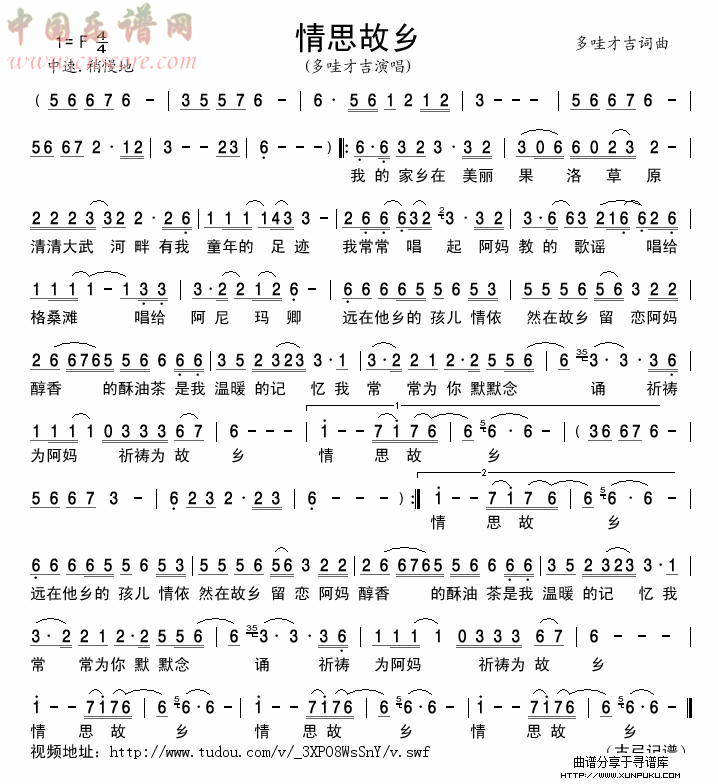 中国乐谱网
www.cnscore.com
情思故乡
1=F 4/4
多哇才吉词曲
中速.稍慢地
(多哇才吉演唱)
( 5 6 6 7 6 - | 3 5 5 7 6 - | 6 · 5 6 1 2 1 2 | 3 - - - | 5 6 6 7 6 - |
5 6 6 7 2 · 1 2 | 3 - - 2 3 | 6 - - - ) ‖: 6 · 6 3 2 3 · 3 2 | 3 0 6 6 0 2 3 2 - |
我 的 家乡在 美丽 果 洛 草 原
2 2 2 3 3 2 2 · 2 6 | 1 1 1 1 4 3 3 - | 2 6 6 6 3 2 2 3 · 3 2 | 3 · 6 6 3 2 1 6 6 2 6 |
清清大武 河 畔 有我 童年的 足 迹 我常常 唱 起 阿妈 教 的 歌谣 唱给
1 1 1 1 - 1 3 3 | 3 · 2 2 1 2 6 - | 6 6 6 6 5 5 6 5 3 | 5 5 5 6 5 6 3 2 2 |
格桑滩 唱给 阿 尼 玛 卿 远在他乡的 孩儿 情依 然在故乡 留 恋阿妈
2 6 6 7 6 5 5 5 6 6 6 | 3 5 2 3 2 3 3 · 1 | 3 · 2 2 1 2 · 2 5 5 5 6 | 6 3 5 3 · 3 · 3 6 |
醇香 的酥油茶 是我 温暖 的记 忆 我 常 常为 你 默默念 诵 祈祷
1
1 1 1 1 0 3 3 3 6 7 | 6 - - - | 1 - - 7 1 7 6 | 6 5 6 · 6 - | ( 3 6 6 7 6 - |
为阿妈 祈祷为 故 乡 情 思 故 乡
2
5 6 6 7 3 - | 6 2 3 2 · 2 3 | 6 - - - ) :‖ 1 - - 7 1 7 6 | 6 5 6 · 6 - |
情 思 故 乡
6 6 6 6 5 5 6 5 3 | 5 5 5 6 5 6 3 2 2 | 2 6 6 7 6 5 5 5 6 6 6 | 3 5 2 3 2 3 3 · 1 |
远在他乡的 孩儿 情依 然在故乡 留 恋 阿妈 醇香 的酥油 茶是我 温暖 的记 忆 我
3 · 2 2 1 2 · 2 5 5 5 6 | 6 3 5 3 · 3 · 3 6 | 1 1 1 1 0 3 3 3 6 7 | 6 - - - |
常 常为你 默 默念 诵 祈祷 为阿妈 祈祷为 故 乡
1 - - 7 1 7 6 | 6 5 6 · 6 - | 1 - - 7 1 7 6 | 6 5 6 · 6 - | 1 - - 7 1 7 6 | 6 5 6 · 6 - ‖
情 思 故 乡 情 思 故 乡 情 思 故 乡
视频地址：http://www.tudou.com/v/_3XPO8WsSnY/v.swf
(古弓记谱)
曲谱分享于寻谱库
WWW.XUNPUKU.COM